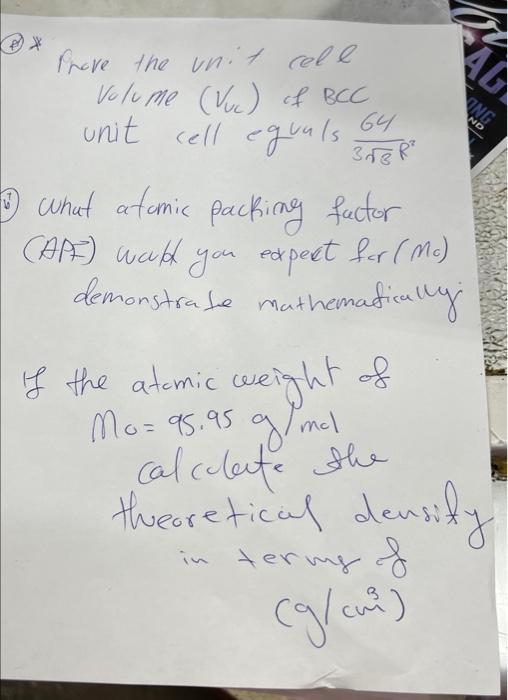 * Prove the unit cell
Volume (Vuc) of BCC
unit cell equals 64/3√3 R³
What atomic packing factor
(APF) would you expect for (Mo)
demonstrate mathematically.
If the atomic weight of
Mo = 95.95 g/mol
calculate the
theoretical density
in terms of
(g/cm³)